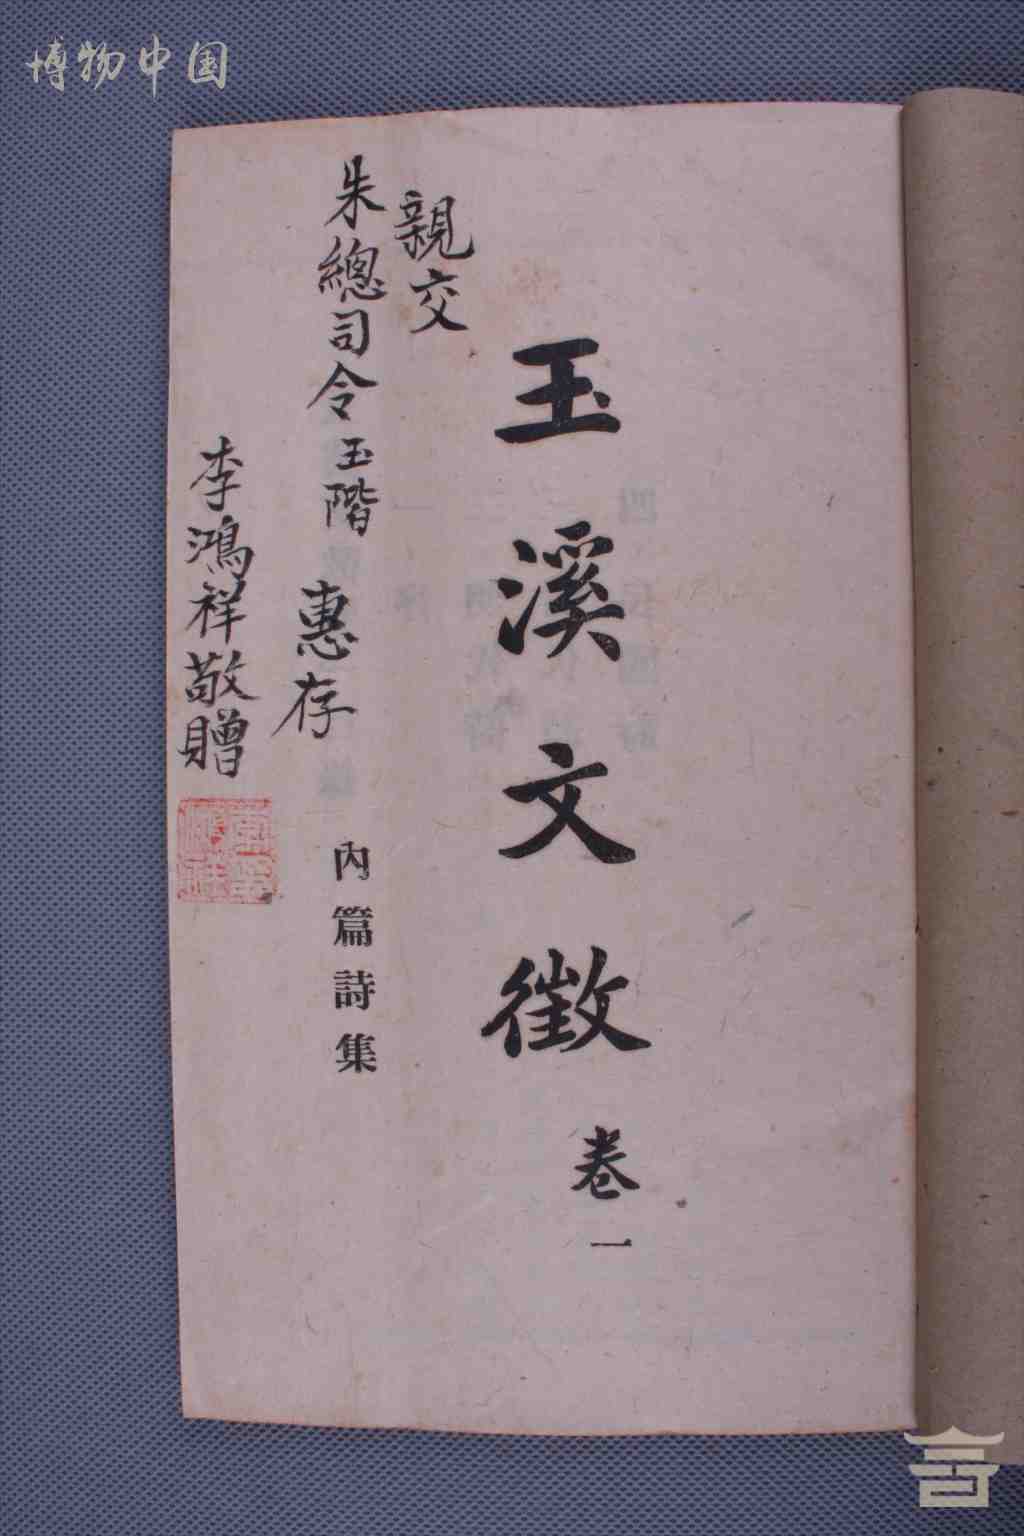 博物中国
玉溪文徵
卷一
親交
朱總司令玉階 惠存
內篇詩集
李鴻祥敬贈